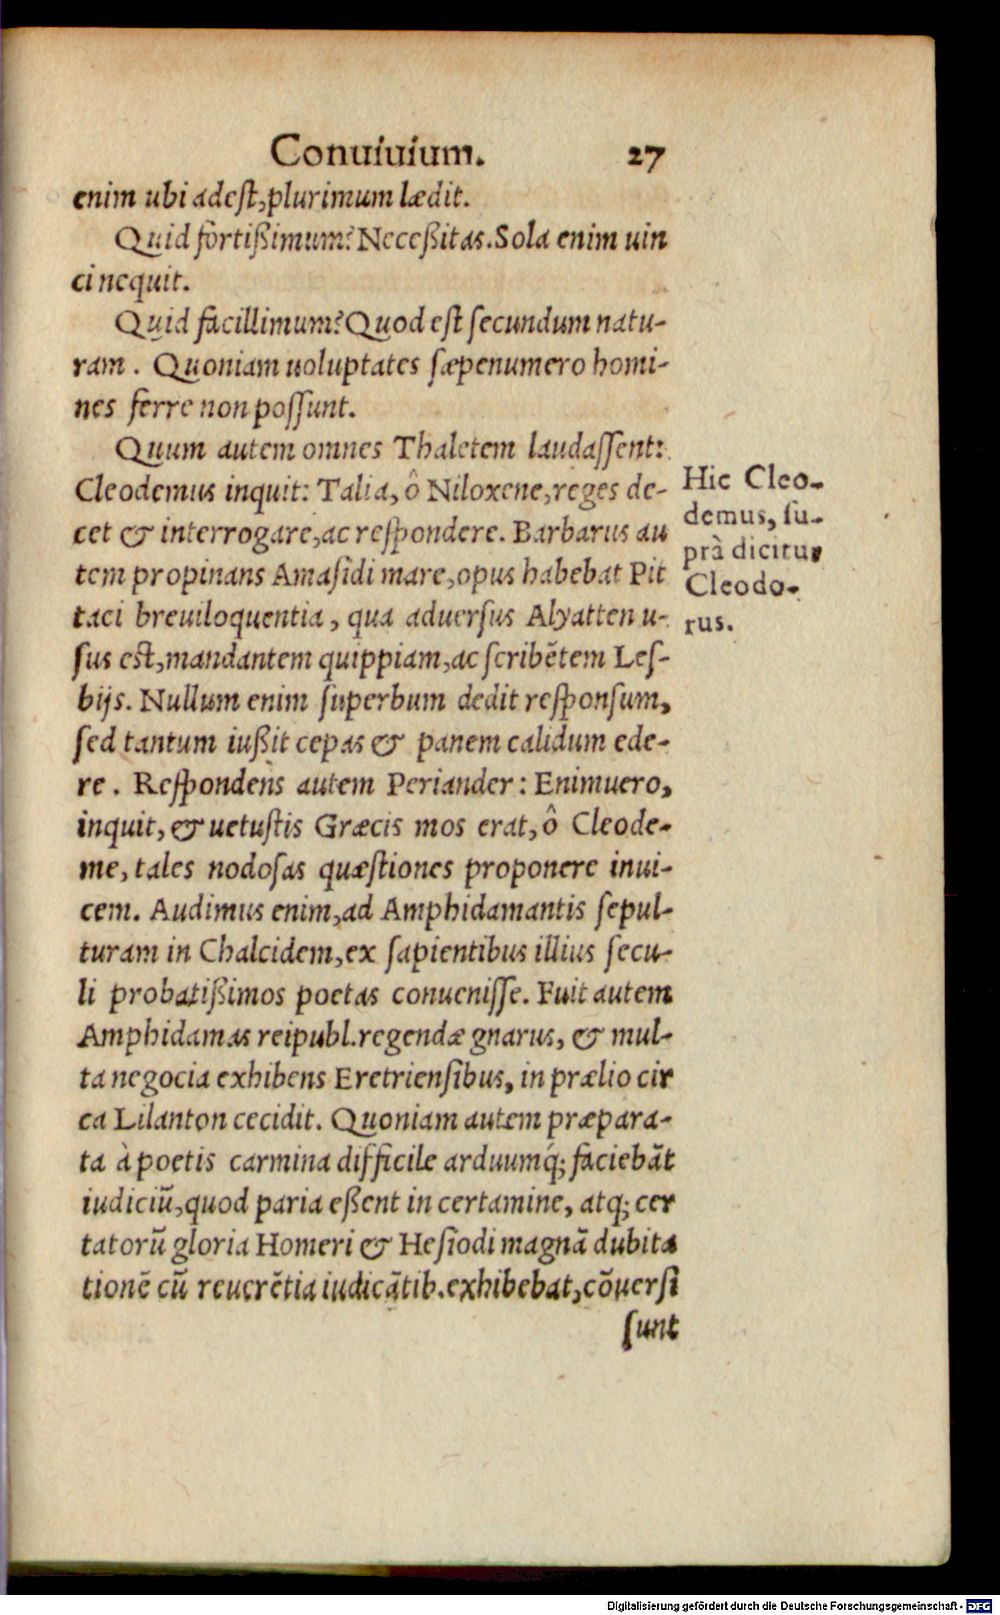 Conuiuium. 27
enim ubi adest, plurimum lædit.
Quid fortißimum? Neceßitas. Sola enim uin
ci nequit.
Quid facillimum? Quod est secundum natu-
ram. Quoniam uoluptates sæpenumero homi-
nes ferre non possunt.
Quum autem omnes Thaletem laudassent:
Cleodemus inquit: Talia, ô Niloxene, reges de-
cet & interrogare, ac respondere. Barbarus au
tem propinans Amasidi mare, opus habebat Pit
taci breuiloquentia, qua aduersus Alyatten u-
sus est, mandantem quippiam, ac scribētem Les-
bijs. Nullum enim superbum dedit responsum,
sed tantum iußit cepas & panem calidum ede-
re. Respondens autem Periander: Enimuero,
inquit, & uetustis Græcis mos erat, ô Cleode-
me, tales nodosas quæstiones proponere inui-
cem. Audimus enim, ad Amphidamantis sepul-
turam in Chalcidem, ex sapientibus illius secu-
li probatißimos poetas conuenisse. Fuit autem
Amphidamas reipubl. regendæ gnarus, & mul-
ta negocia exhibens Eretriensibus, in prælio cir
ca Lilanton cecidit. Quoniam autem præpara-
ta à poetis carmina difficile arduumq́; faciebāt
iudiciū, quod paria eßent in certamine, atq; cer
tatorū gloria Homeri & Hesiodi magnā dubita
tionē cū reuerētia iudicātib. exhibebat, cōuersi
sunt
Hic Cleo-
demus, su-
prà dicitur
Cleodo-
rus.
Digitalisierung gefördert durch die Deutsche Forschungsgemeinschaft - DFG